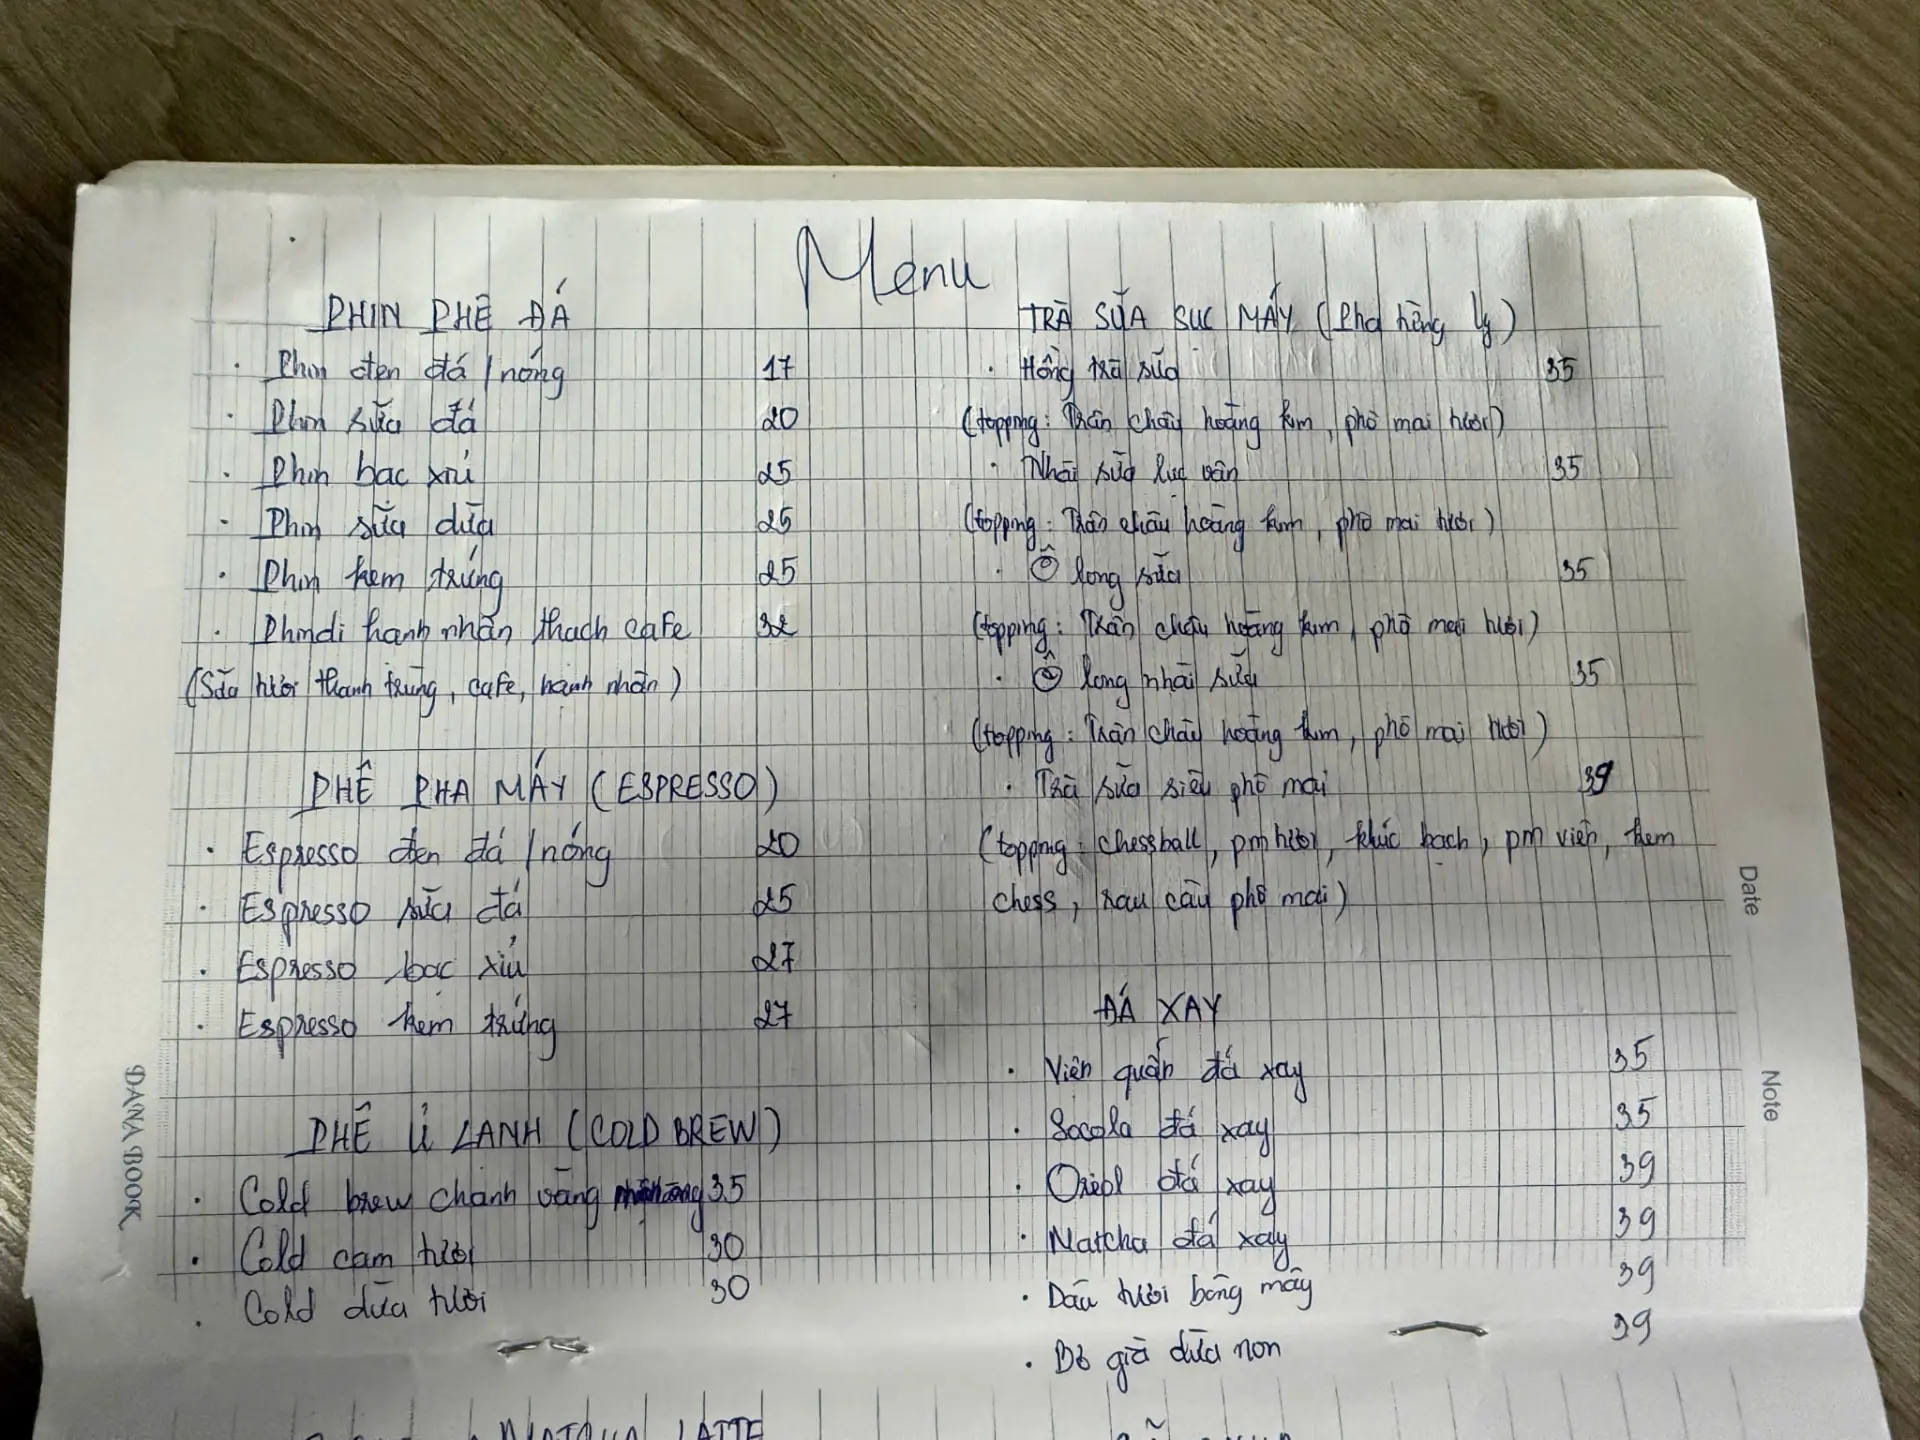 Menu
PHIN PHÊ ĐÁ
. Phin đen đá / nóng 17
. Phin sữa đá 20
. Phin bạc xỉu 25
. Phin sữa dừa 25
. Phin kem trứng 25
. Phindi hạnh nhân thạch cafe 32
(Sữa tươi thanh trùng, cafe, hạnh nhân)
PHÊ PHA MÁY (ESPRESSO)
. Espresso đen đá / nóng 20
. Espresso sữa đá 25
. Espresso bạc xỉu 27
. Espresso kem trứng 27
PHÊ Ủ LẠNH (COLD BREW)
. Cold brew chanh vàng 35
. Cold cam tươi 30
. Cold dừa tươi 30
TRÀ SỮA SỤC MÁY (Pha từng ly)
. Hồng trà sữa 35
(topping: Trân châu hoàng kim, phô mai tươi)
. Nhài sữa lục vân 35
(topping: Trân châu hoàng kim, phô mai tươi)
. Ô long sữa 35
(topping: Trân châu hoàng kim, phô mai tươi)
. Ô long nhài sữa 35
(topping: Trân châu hoàng kim, phô mai tươi)
. Trà sữa siêu phô mai 39
(topping: chessball, pm tươi, khúc bạch, pm viên, kem
chess, rau câu phô mai)
ĐÁ XAY
. Việt quất đá xay 35
. Socola đá xay 35
. Oreo đá xay 39
. Matcha đá xay 39
. Dâu tươi bồng mây 39
. Bơ già dừa non 39
MATCHA LATTE
DANA BOOK
Date
Note